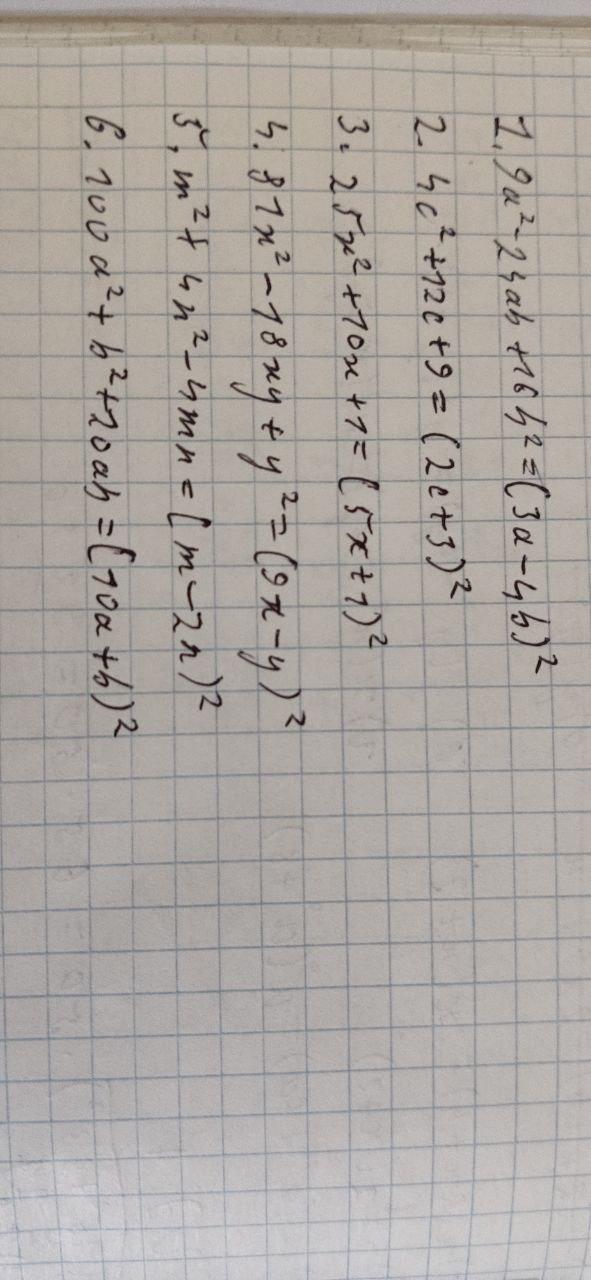 1. 9a²-24ab+16b²=(3a-4b)²
2. 4c²+12c+9=(2c+3)²
3. 25x²+10x+1=(5x+1)²
4. 81x²-18xy+y²=(9x-y)²
5. m²+4n²-4mn=(m-2n)²
6. 100a²+b²+20ab=(10a+b)²